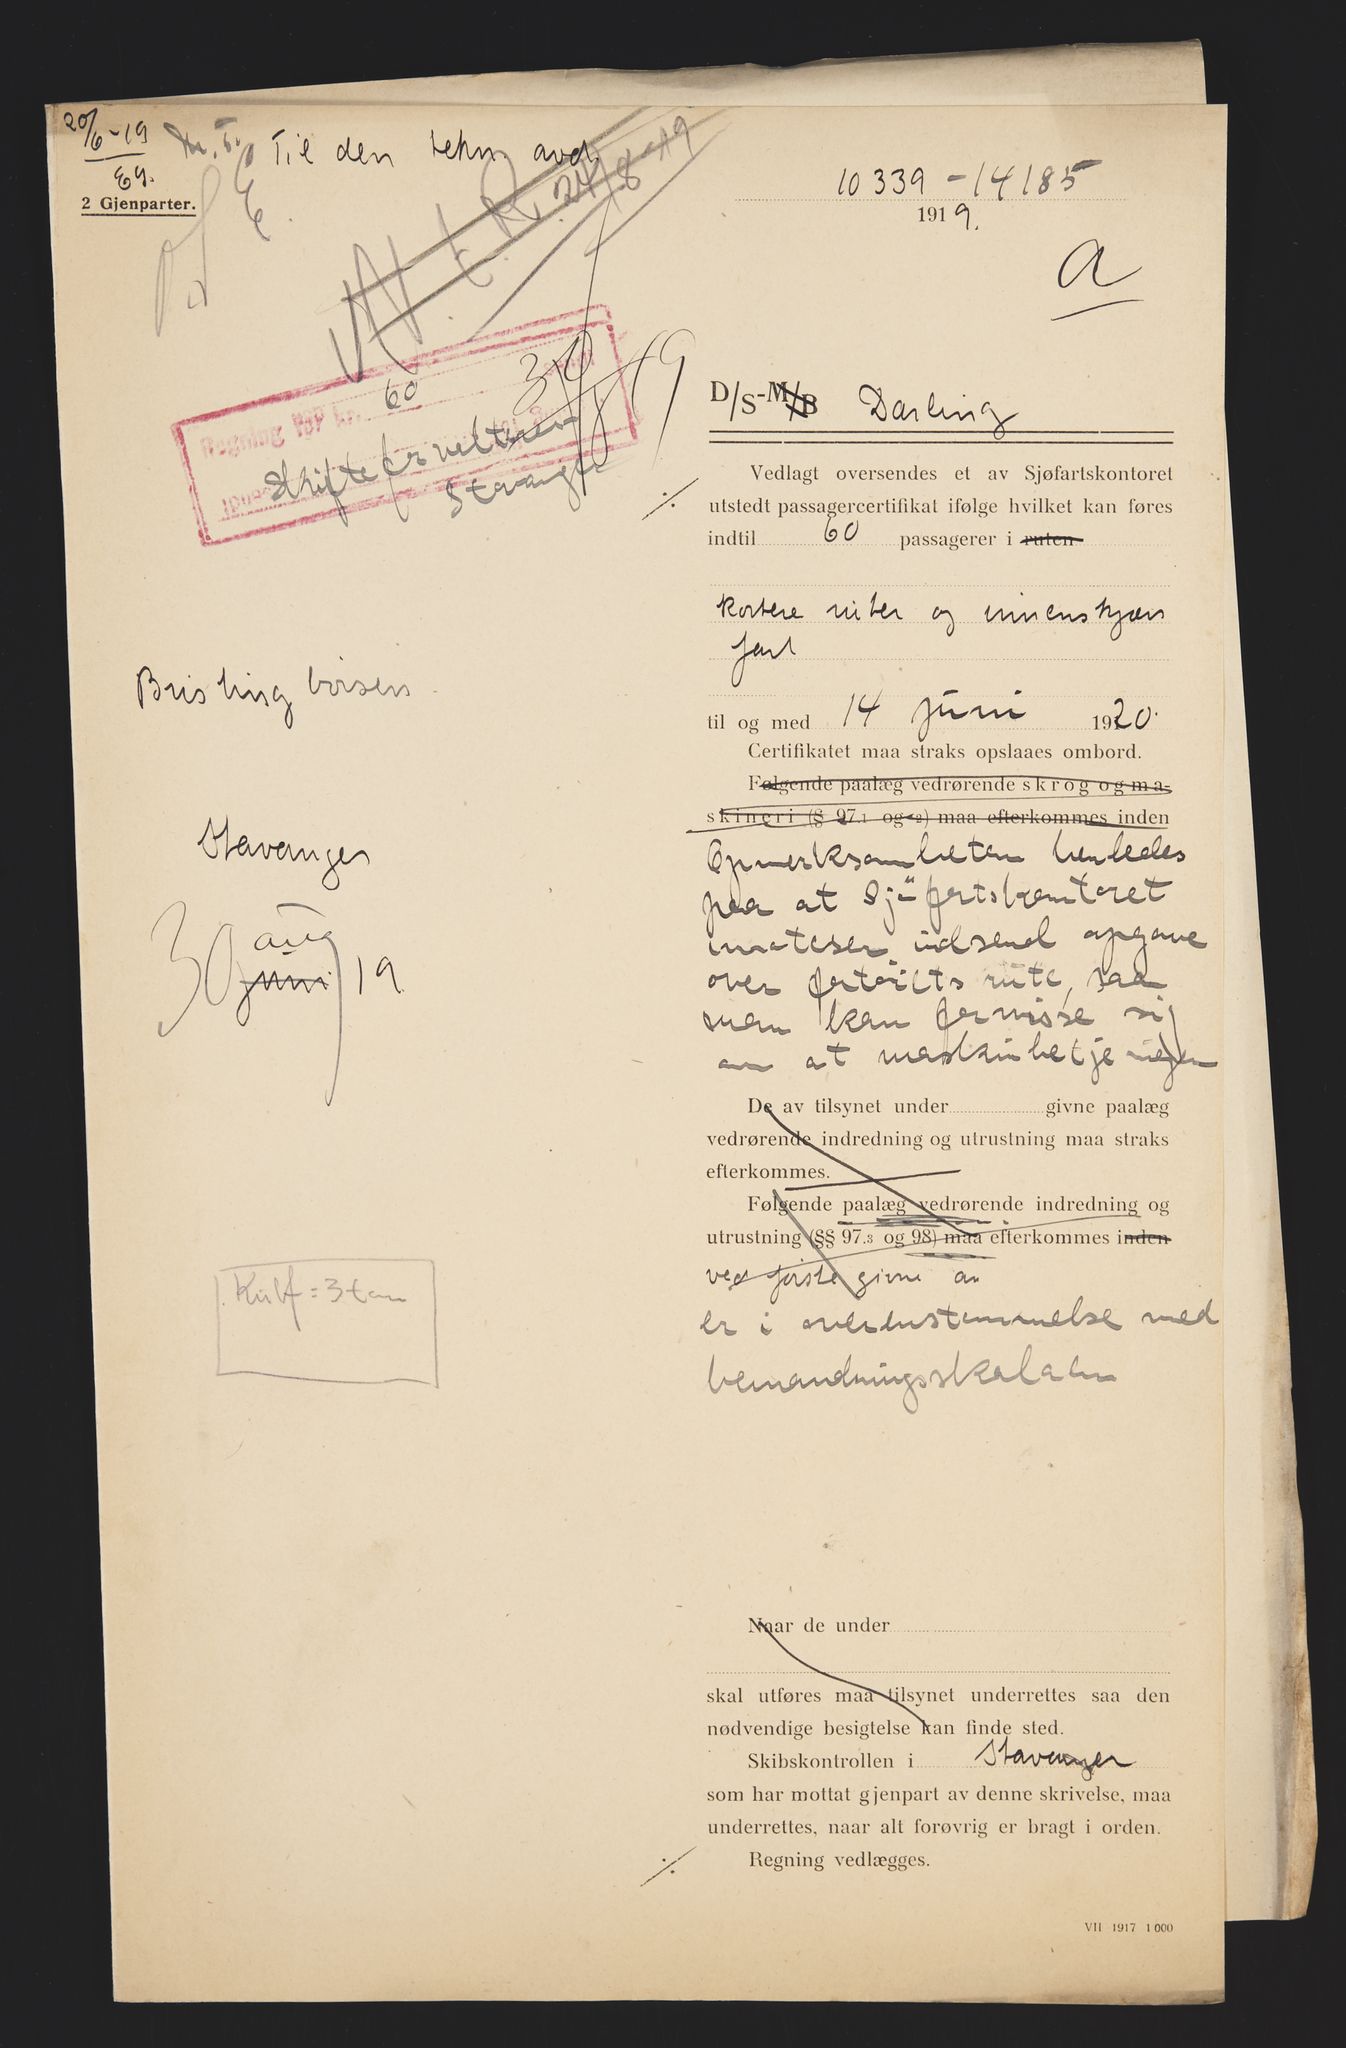 20/6-19
Eg.
Til den tekn avd.
2 Gjenparter.
10339-14185
1919.
a
60
Regning for kr.
Stavanger
D/S-M/B Darling
Vedlagt oversendes et av Sjøfartskontoret
utstedt passagercertifikat ifølge hvilket kan føres
indtil 60 passagerer i ruten
kortere ruter og innenskjærs
fart
Brisling børsen
til og med 14 juni 1920.
Certifikatet maa straks opslaaes ombord.
Følgende paalæg vedrørende skrog og ma-
skineri (§ 97.1 og 2) maa efterkommes inden
Stavanger
30 juni aug 19
Opmerksomheten henledes
paa at Sjøfartskontoret
maa indsend opgave
over fartøiets rute, saa
man kan forvisse sig
om at maskinbetjeningen
De av tilsynet under givne paalæg
vedrørende indredning og utrustning maa straks
efterkommes.
Følgende paalæg vedrørende indredning og
utrustning (§§ 97.3 og 98) maa efterkommes inden
ved første givne an
Kulf = 3 ton
er i overenstemmelse med
bemandningsskalaen
Naar de under
skal utføres maa tilsynet underrettes saa den
nødvendige besigtelse kan finde sted.
Skibskontrollen i Stavanger
som har mottat gjenpart av denne skrivelse, maa
underrettes, naar alt forøvrig er bragt i orden.
Regning vedlægges.
VII 1917 1000